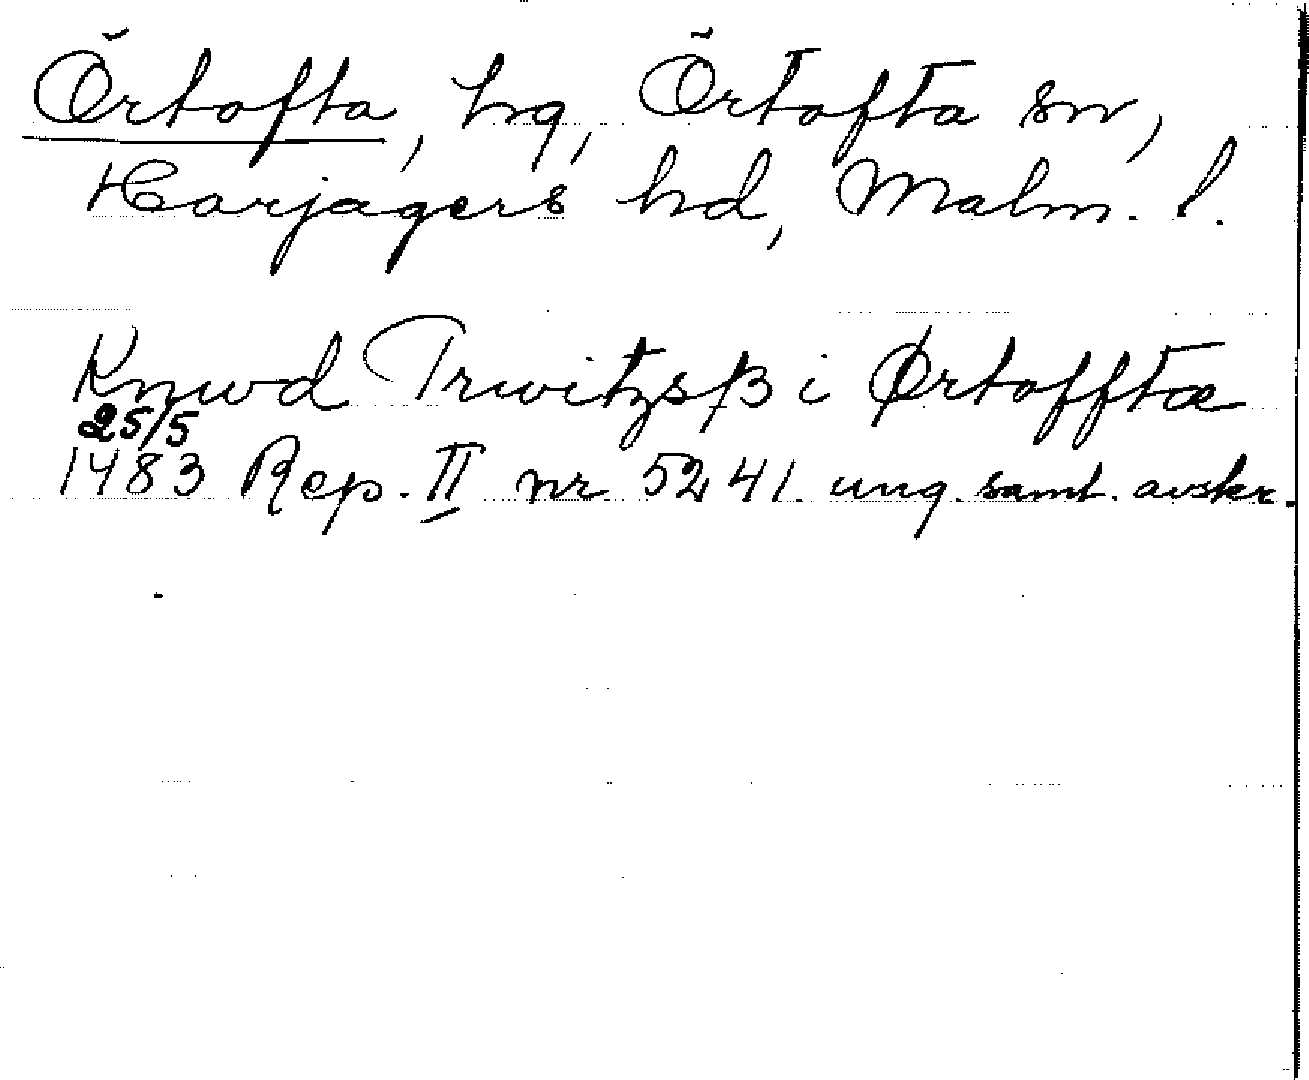 Örtofta, hg, Örtofta sn,
Harjagers hd, Malm. l.
Knwd Trwitzsβ i Ørtofftæ
25/5
1483 Rep. II nr 5241. ung. samt. avskr.